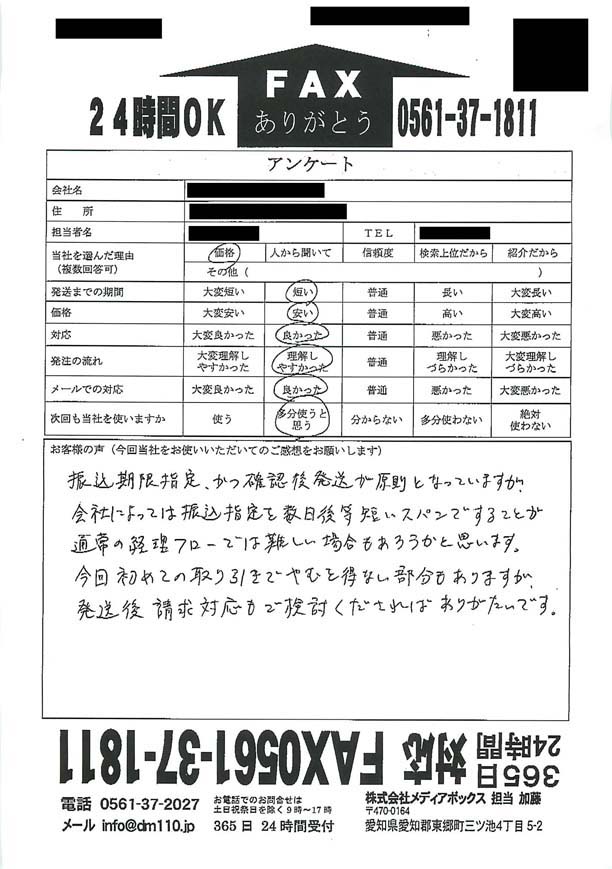 FAX
ありがとう
24時間OK
0561-37-1811
アンケート
会社名
住 所
担当者名 TEL
当社を選んだ理由 (複数回答可) 価格 人から聞いて 信頼度 検索上位だから 紹介だから
その他 ( )
発送までの期間 大変短い 短い 普通 長い 大変長い
価格 大変安い 安い 普通 高い 大変高い
対応 大変良かった 良かった 普通 悪かった 大変悪かった
発注の流れ 大変理解しやすかった 理解しやすかった 普通 理解しづらかった 大変理解しづらかった
メールでの対応 大変良かった 良かった 普通 悪かった 大変悪かった
次回も当社を使いますか 使う 多分使うと思う 分からない 多分使わない 絶対使わない
お客様の声(今回当社をお使いいただいてのご感想をお願いします)
振込期限指定、かつ確認後発送が原則となっていますが、
会社によっては振込指定を数日後等短いスパンですることが
通常の経理フローでは難しい場合もあろうかと思います。
今回初めての取り引きでやむを得ない部分もありますが、
発送後請求対応もご検討くださればありがたいです。
365日
24時間
対応 FAX0561-37-1811
電話 0561-37-2027
メール info@dm110.jp
お電話でのお問合せは
土日祝祭日を除く9時~17時
365日 24時間受付
株式会社メディアボックス 担当 加藤
〒470-0164
愛知県愛知郡東郷町三ツ池4丁目5-2